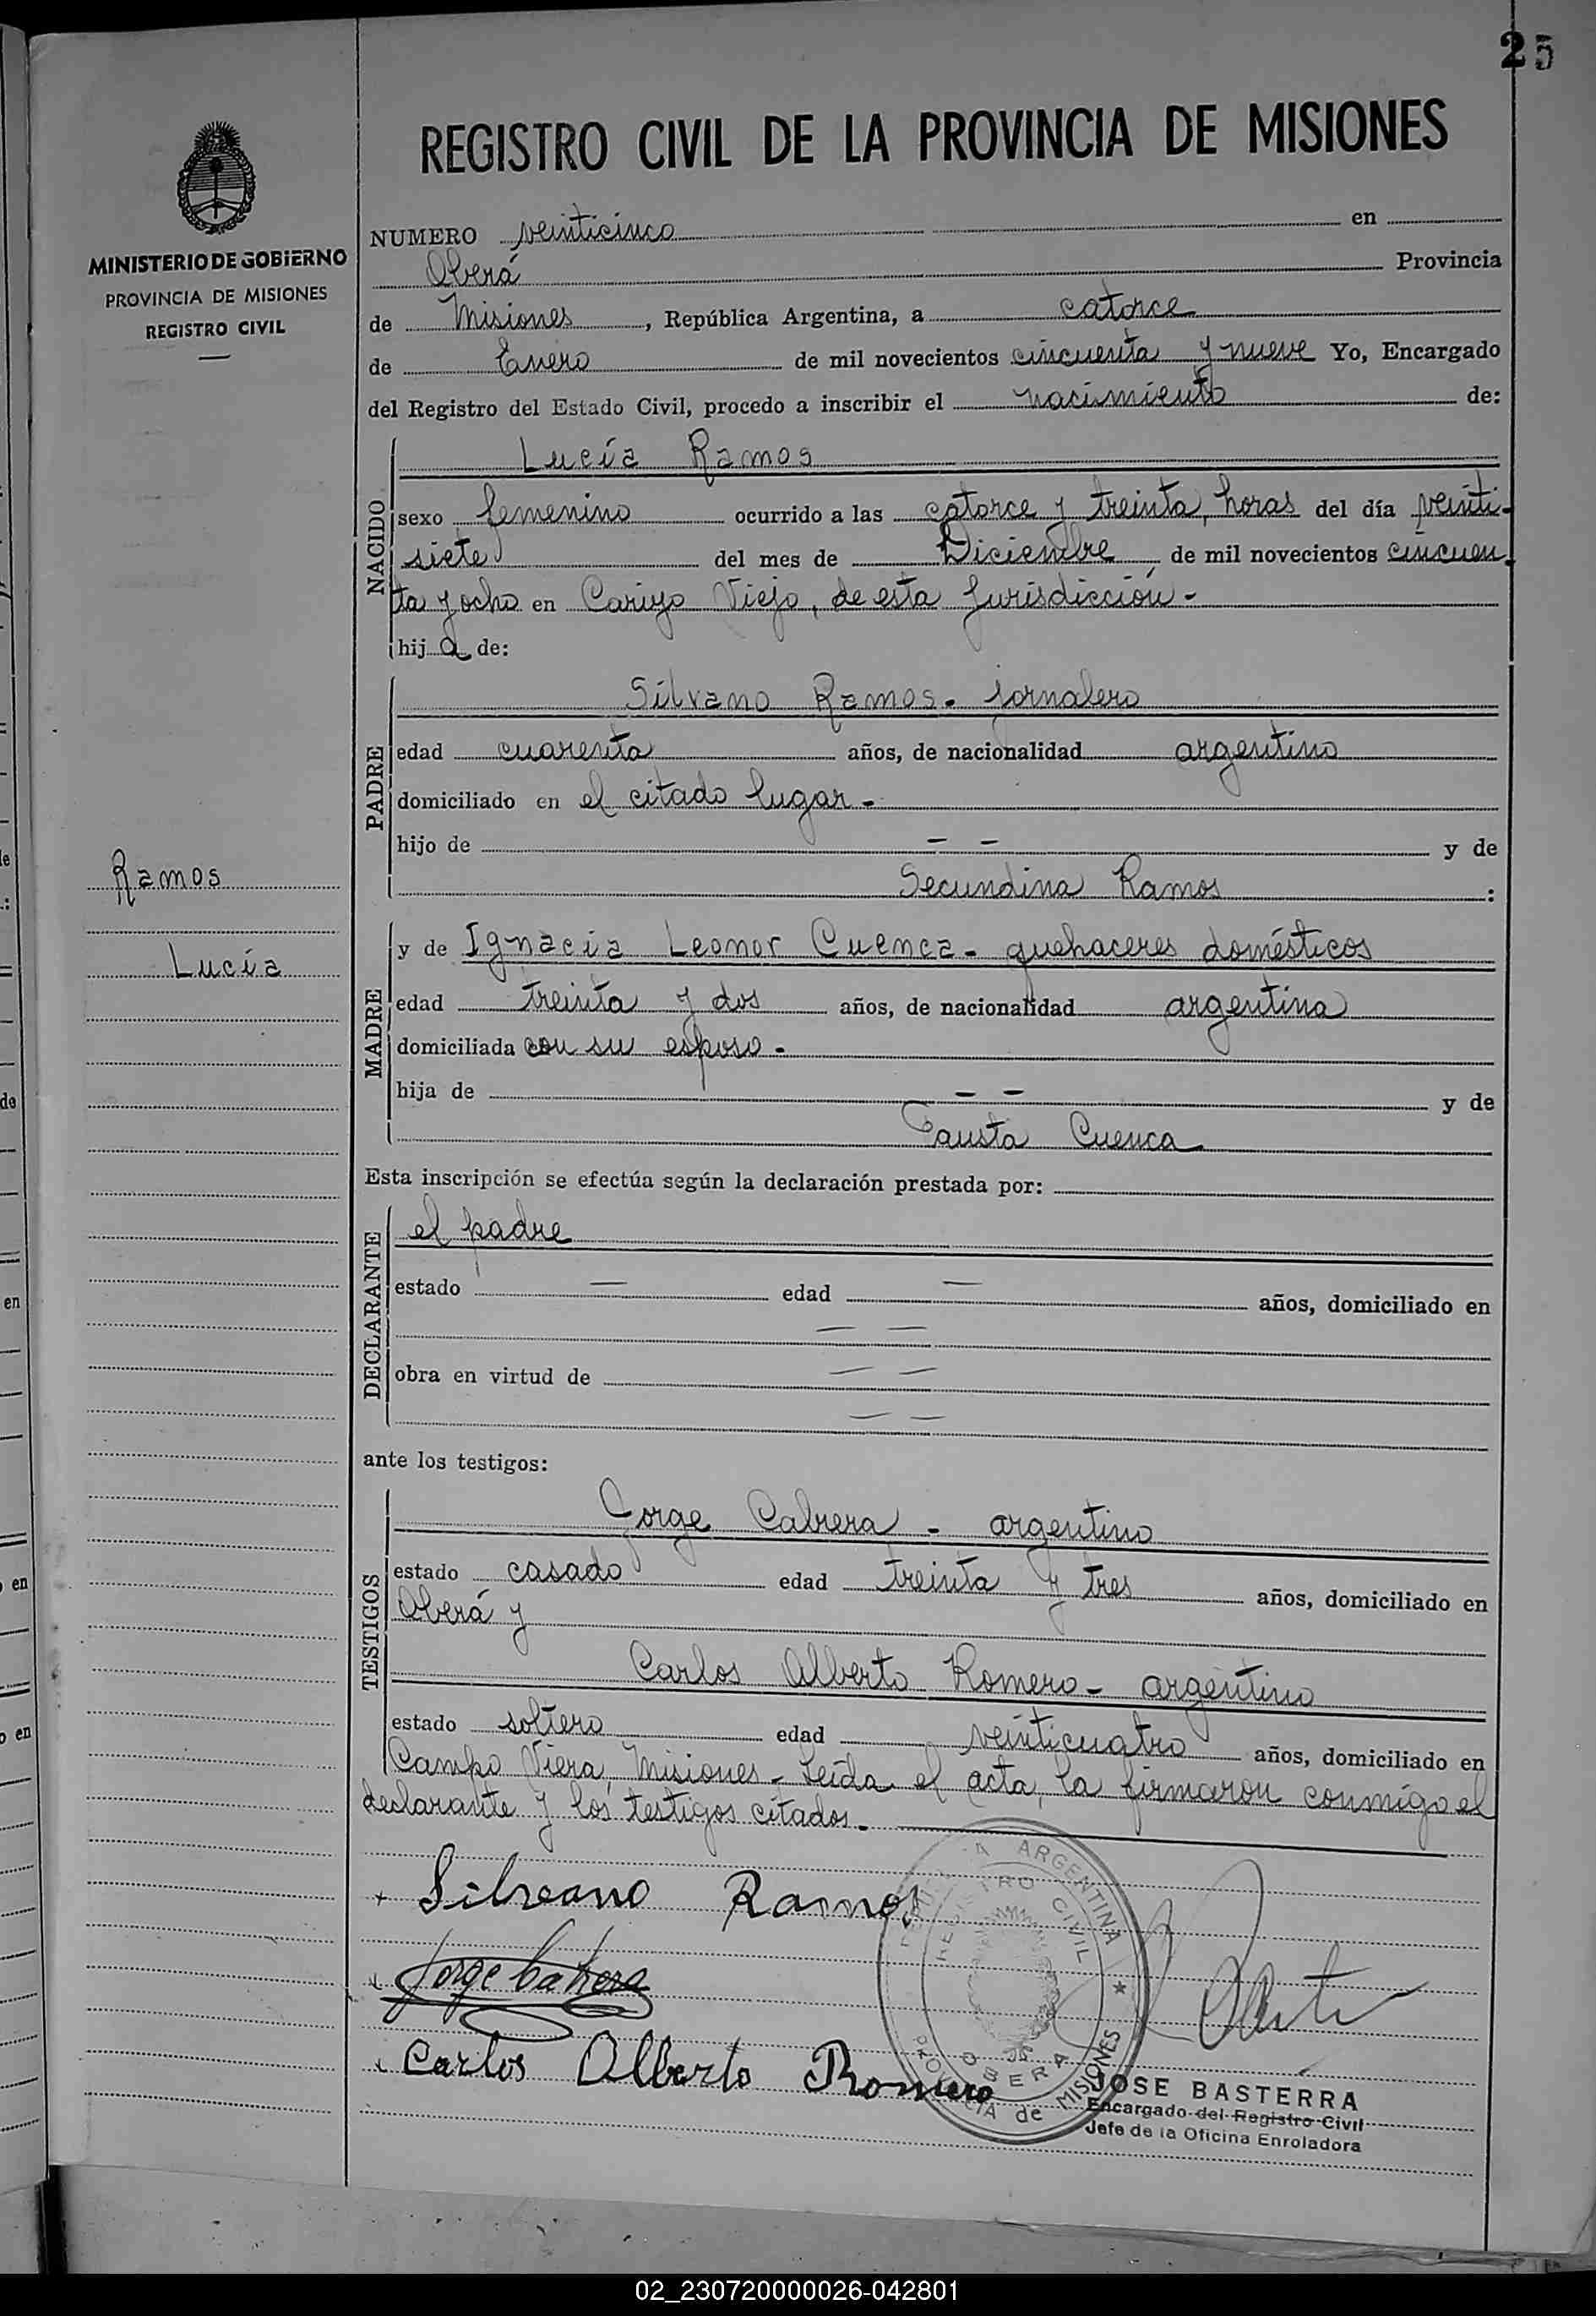 25
REGISTRO CIVIL DE LA PROVINCIA DE MISIONES
MINISTERIO DE GOBIERNO
PROVINCIA DE MISIONES
REGISTRO CIVIL
NUMERO veinticinco en
Oberá Provincia
de Misiones, República Argentina, a catorce
de Enero de mil novecientos cincuenta y nueve Yo, Encargado
del Registro del Estado Civil, procedo a inscribir el nacimiento de:
NACIDO
Lucía Ramos
sexo femenino ocurrido a las catorce y treinta, horas del día veinti-
siete del mes de Diciembre de mil novecientos cincuen
ta y ocho en Viejo, de esta Jurisdicción -
hij a de:
PADRE
Silvano Ramos - jornalero
edad cuarenta años, de nacionalidad argentino
domiciliado en el citado lugar -
hijo de - - y de
Secundina Ramos :
Ramos
Lucía
MADRE
y de Ignacia Leonor Cuenca - quehaceres domésticos
edad treinta y dos años, de nacionalidad argentina
domiciliada con su esposo -
hija de - - y de
Fausta Cuenca
Esta inscripción se efectúa según la declaración prestada por:
DECLARANTE
el padre
estado — edad — años, domiciliado en
— —
obra en virtud de — —
— —
ante los testigos:
TESTIGOS
Jorge Cabrera - argentino
estado casado edad treinta y tres años, domiciliado en
Oberá y
Carlos Alberto Romero - argentino
estado soltero edad veinticuatro años, domiciliado en
Campo Viera, Misiones - Leída el acta, la firmaron conmigo el
declarante y los testigos citados. -
Silveano Ramos
Jorge Cabrera
Carlos Alberto Romero
ARGENTINA
REGISTRO CIVIL
OBERA
PROVINCIA de MISIONES
JOSE BASTERRA
Encargado del Registro Civil
Jefe de la Oficina Enroladora
02_230720000026-042801